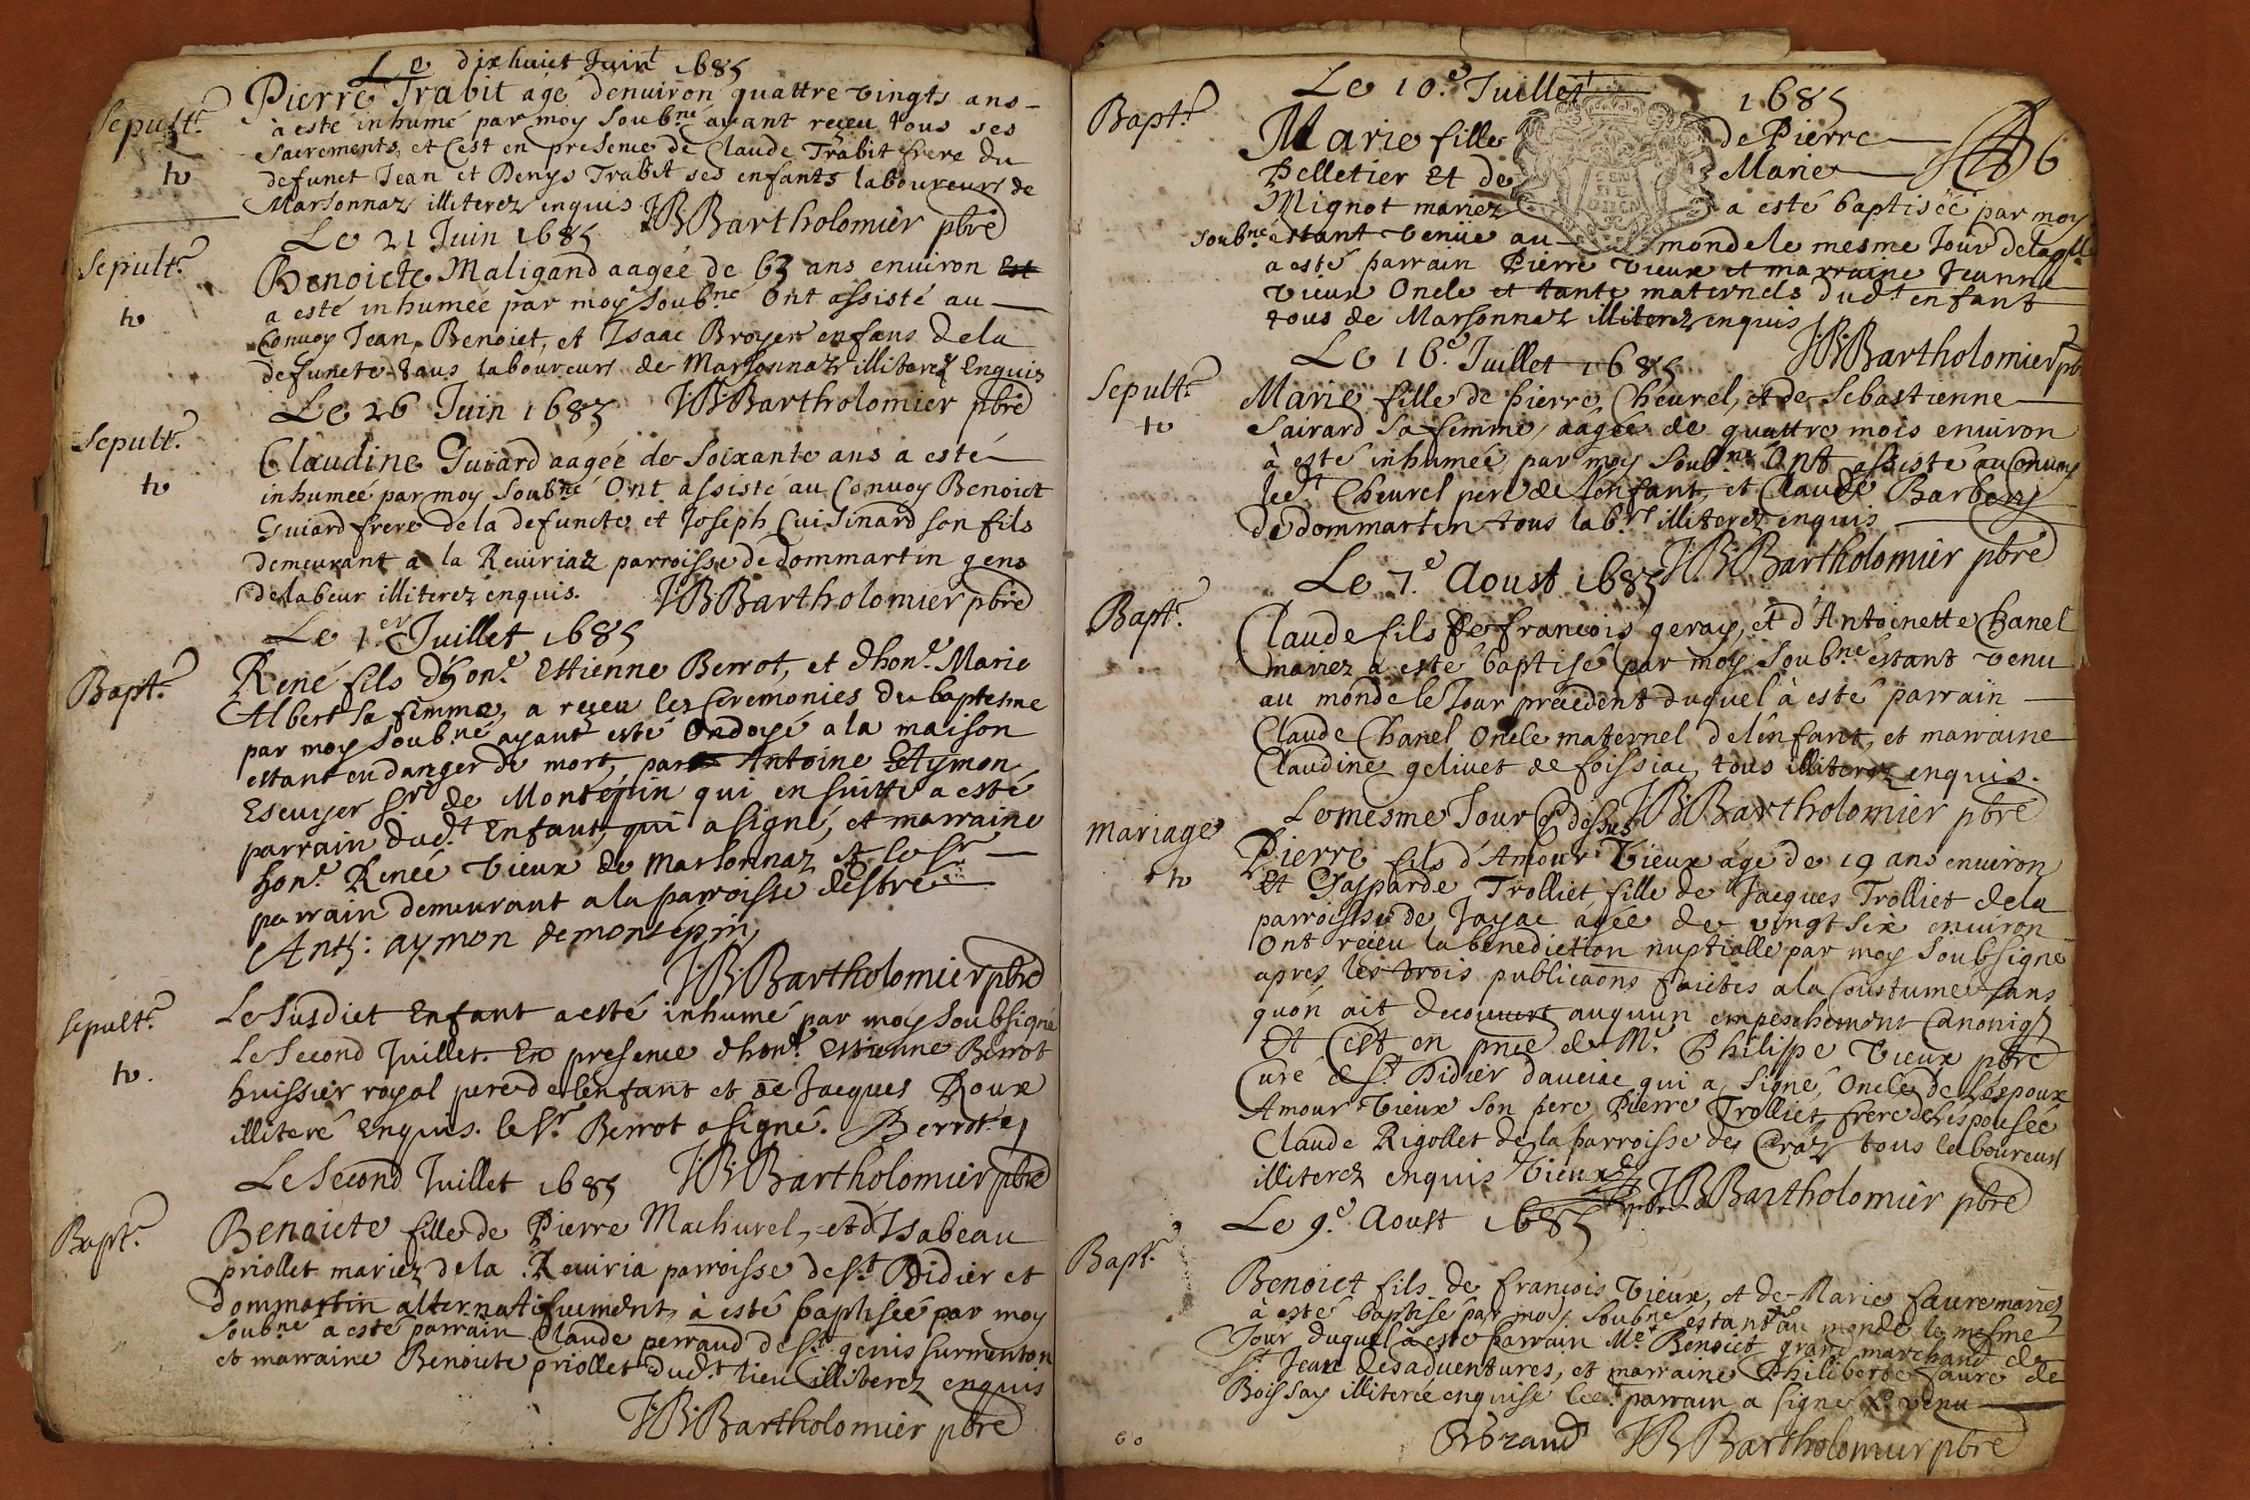 Le dixhuict Juint 1685
Sepult.re
Pierre Trabit agé denuiron quattre vingts ans
à esté inhumé par moy soub.né ayant reçeu tous ses
sacrements, et c'est en presence de Claude Trabit frere du
defunct Jean et Denys Trabit ses enfants laboureurs de
Marsonnaz illiterez enquis JB Bartholomier pbre
Le 21 Juin 1685
Sepult.re
Benoicte Maligand aagée de 63 ans enuiron
a esté inhumée par moy soub.né Ont assisté au
Conuoy Jean, Benoict, et Isaac Broyer enfans dela
defuncte tous laboureurs de Marsonnaz illiterez Enquis
Le 26 Juin 1685 JB Bartholomier pbre
Sepult.re
Claudine Guiard aagée de soixante ans a esté
inhumeé par moy soubné Ont assisté au Conuoy Benoict
Guiard frere dela defuncte et Joseph Cuisinard son fils
demeurant a la Reuiriaz parroisse de dommartin gens
delabeur illiterez enquis. JB Bartholomier pbre
Le 1.er Juillet 1685
Bapt.e
René fils d'hon.e Estienne Berrot, et dhon.e Marie
Albert sa femme, a reçeu les Ceremonies du baptesme
par moy soub.né ayant esté Ondoyé a la maison
estant en danger de mort, par Antoine Aymon
Escuyer Sr de Montepin qui ensuitte a esté
parrain dud.t Enfant, qui a signé, et marraine
hon.e Renée Vieux de Marsonnaz et le Sr
parrain demeurant a la parroisse destre
Anth: aymon de montepin
JB Bartholomier pbre
Sepult.re
Le susdict Enfant a esté inhumé par moy soubsigné
Le second Juillet. En presence dhon.e Estienne Berrot
huissier royal pere de lenfant et de Jacques Roux
illiteré Enquis. le Sr Berrot a signé. Berrot
Le second Juillet 1685 JB Bartholomier pbre
Bapt.e
Benoicte fille de Pierre Machurel, et d'Isabeau
priollet mariez dela Reuiria parroisse de St Didier et
dommartin alternatifuement, à esté baptisée par moy
soubné a esté parrain Claude perraud de St genis surmenton
et marraine Benoicte priollet dud.t lieu illiterez enquis
JB Bartholomier pbre
Le 10.e Juillet 1685
Bapt.e
Marie fille de Pierre
Pelletier et de Marie
Mignot mariez a esté baptisée par moy
soubné estant venüe au monde le mesme Jour delaq.lle
a esté parrain Pierre Vieux et marraine Jeanne
Vieux Oncle et tante maternels dud.t enfant
tous de Marsonnaz illiterez enquis
Le 16.e Juillet 1685 JB Bartholomier pb
Sepult.re
Marie fille de Pierre Cheurel, et de Sebastienne
Sairard sa femme, aagée de quattre mois enuiron
à esté inhumeé par moy soub.né Ont assisté au Conuoy
led.t Cheurel pere de lenfant, et Claude
de dommartin tous lab.rs illiterez enquis
Le 7.e Aoust 1685 JB Bartholomier pbre
Bapt.e
Claude fils de francois geray, et d'Antoinette Chanel
mariez a esté baptisé par moy soub.né estant venu
au monde le Jour précédent duquel à esté parrain
Claude Chanel Oncle maternel de lenfant, et marraine
Claudine gelivet de foissiac tous illiterez enquis.
Le mesme Jour Cy dessus JB Bartholomier pbre
Mariage
Pierre fils d'Amour Vieux agé de 19 ans enuiron
Et Gasparde Trolliet fille de Jacques Trolliet dela
parroisse de Jayac agée de vingt six enuiron
Ont reçeu la benediction nuptialle par moy soubsigné
apres les trois publicaons faictes a la Coustume sans
quon ait decouuert auquun empeschement Canoniq
Et c'est en pnce de M.e Philippe Vieux pbre
Curé de St Didier dauciac qui a signé, Oncle de l'éspoux
Amour Vieux son pere Pierre Trolliet frere de lespousée
Claude Rigollet de la parroisse de Craz tous laboureurs
illiterez enquis Vieux JB Bartholomier pbre
Le 9.e Aoust 1685
Bapt.e
Benoict fils de francois Vieux, et de Marie faure mariez
à esté baptisé par moy soubné estant au monde le mesme
Jour duquel à esté parrain Me Benoict grand marchand de
St Jean des aduentures, et marraine Philiberte faure de
Boissay illiterée enquise led.t parrain a signé
JB Bartholomier pbre